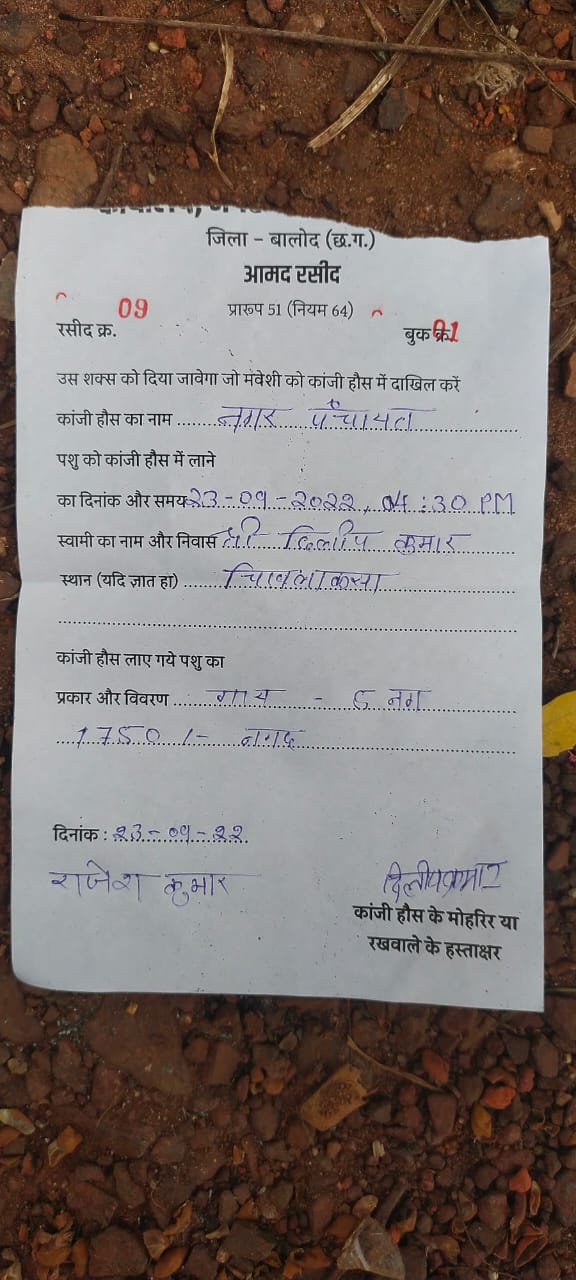 जिला – बालोद (छ.ग.)
आमद रसीद
प्रारूप 51 (नियम 64)
रसीद क्र. 09 बुक क्र. 01
उस शक्स को दिया जावेगा जो मवेशी को कांजी हौस में दाखिल करें
कांजी हौस का नाम ..... नगर पंचायत
पशु को कांजी हौस में लाने
का दिनांक और समय 23-09-2022, 04:30 PM
स्वामी का नाम और निवास श्री दिलीप कुमार
स्थान (यदि ज्ञात हा) ..... चिखलाकसा
कांजी हौस लाए गये पशु का
प्रकार और विवरण ..... गाय - 5 नग
1750/- नगद
दिनांक : 23-09-22
राजेश कुमार दिलीपकुमार
कांजी हौस के मोहरिर या
रखवाले के हस्ताक्षर